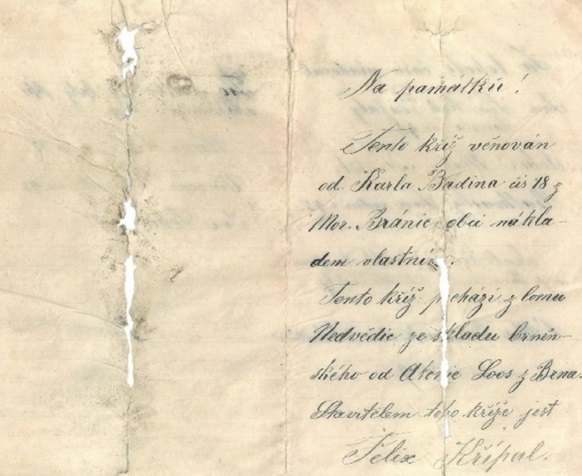 Na památku!
Tento kříž věnován
od Karla Badina čís 18 z
Mor. Bránic, obci nákla-
dem vlastním.
Tento kříž pochází z lomu
Nedvědic ze skladu brněn-
ského od Loos z Brna.
Stavitelem toho kříže jest
Felix Křípal.